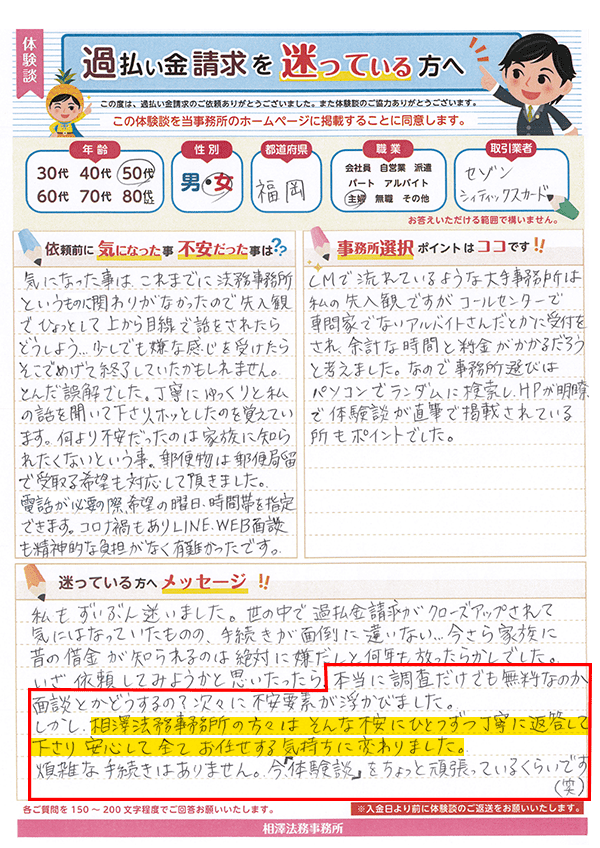 体験談
過払い金請求を迷っている方へ
この度は、過払い金請求のご依頼ありがとうございました。また体験談のご協力ありがとうございます。
この体験談を当事務所のホームページに掲載することに同意します。
年齢
30代 40代 50代
60代 70代 80代
性別
男・女
都道府県
福岡
職業
会社員 自営業 派遣
パート アルバイト
主婦 無職 その他
取引業者
セゾン
シティックスカード
お答えいただける範囲で構いません。
依頼前に気になった事 不安だった事は??
気になった事は、これまでに法務事務所
というものに関わりがなかったので先入観
でひょっとして上から目線で話をされたら
どうしよう…少しでも嫌な感じを受けたら
そこでめげて終了していたかもしれません。
とんだ誤解でした。丁寧にゆっくりと私
の話を聞いて下さりホッとしたのを覚えてい
ます。何より不安だったのは家族に知ら
れたくないという事。郵便物は郵便局留
で受取る希望も対応して頂きました。
電話が必要の際、希望の曜日・時間帯を指定
できます。コロナ禍もありLINE・WEB面談
も精神的な負担がなく有難かったです。
事務所選択ポイントはココです!!
CMで流れているような大手事務所は
私の先入観ですがコールセンターで
専門家でないアルバイトさんだとかに受付を
され、余計な時間と料金がかかるだろう
と考えました。なので事務所選びは
パソコンでランダムに検索し、HPが明瞭
で体験談が直筆で掲載されている
所もポイントでした。
迷っている方へメッセージ!!
私もずいぶん迷いました。世の中で過払金請求がクローズアップされて
気にはなっていたものの、手続きが面倒に違いない…今さら家族に
昔の借金が知られるのは絶対に嫌だしと何年も放ったらかしでした。
いざ依頼してみようかと思いたったら、本当に調査だけでも無料なのか
面談とかどうするの?次々に不安要素が浮かびました。
しかし、相澤法務事務所の方々はそんな不安にひとつずつ丁寧に返答して
下さり安心して全てお任せする気持ちに変わりました。
煩雑な手続きはありません。今、「体験談」をちょっと頑張っているくらいです
(笑)
各ご質問を150~200文字程度でご回答お願いいたします。
※入金日より前に体験談のご返送をお願いいたします。
相澤法務事務所